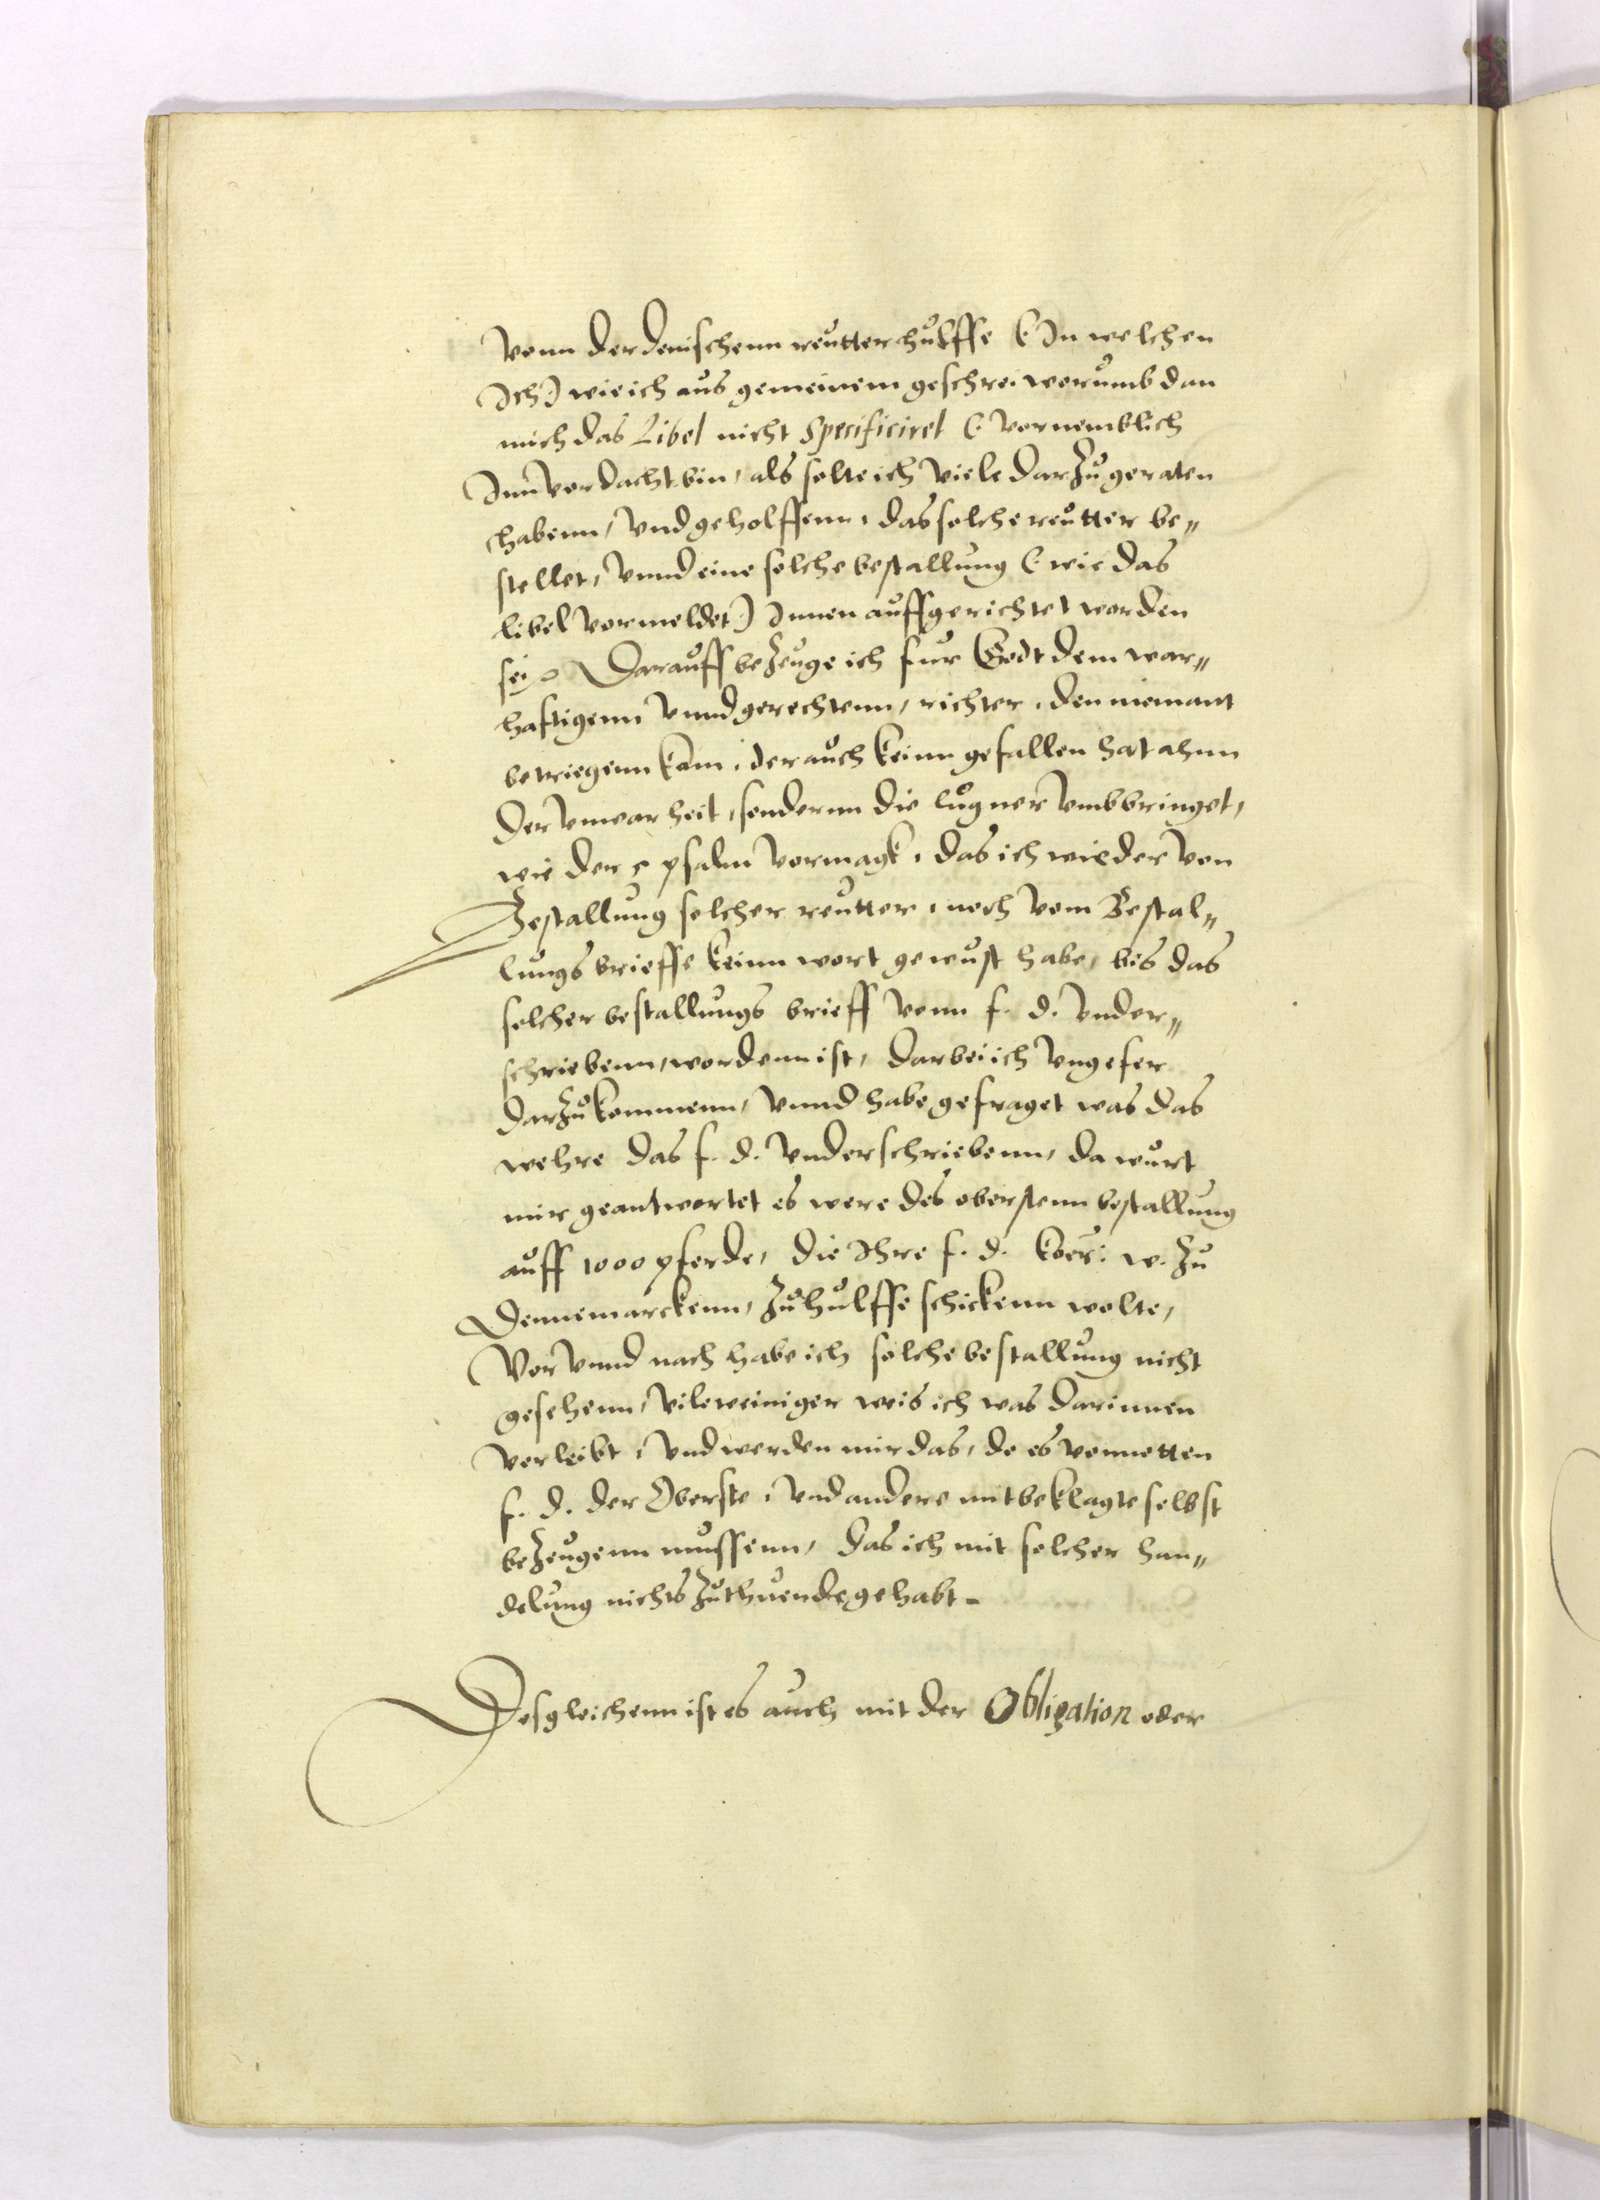 Vonn der denischenn reutter hulffe (: In welchen
Ich :) wie ich aus gemeinem geschrei worumb dan
mich das Libel nicht Specificiret (: vornemblich
Inn vordacht bin, als solte ich viele darzu geraten
habenn, vnd geholffenn, das solche reutter be„
stellet, vnnd eine solche bestallung (: wie das
libel vormeldet :) Innen auffgerichtet worden
sei, Darauff bezeuge ich fur Godt dem war„
hafftigenn vnnd gerechtenn, richter, den niemant
betriegenn kann, der auch keinn gefallen hat ahnn
der vnwarheit, sondernn die lugner vmbbringet,
wie der 5 psalm vormagk, das ich wieder von
Bestallung solcher reutter, noch vom Bestal„
lungs brieffe keinn wort gewust habe, bis das
solcher bestallungs brieff vonn f. d. vnder„
schriebenn, wordenn ist, darbei ich vngefer
darzu kommenn, vnnd habe gefraget was das
wehre das f. d. vnderschriebenn, da wurt
mir geantwortet es were des oberstenn bestallung
auff 1000 pferde, die Ihre f. d. koe: w. zu
Dennemarckenn, zu hulffe schickenn wolte,
Vor vnnd nach habe ich solche bestallung nicht
gesehenn, vileweiniger weis ich was darinnen
verleibt, vnd werden mir das, do es vonnotten
f. d. der Oberste, vnd andere mitbeklagte selbst
bezeugenn mussenn, das ich mit solcher han„
delung nichts zuthuende gehabt.
Desgleichenn ist es auch mit der Obligation oder